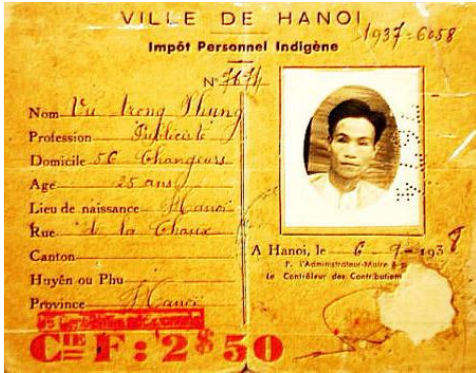 VILLE DE HANOI
1937-6058
Impôt Personnel Indigène
N° 7674
Nom Vu trong Phung
Profession Publiciste
Domicile 56 Changeurs
Age 25 ans
Lieu de naissance Hanoi
Rue de la Chaux
Canton
Huyên ou Phu
Province Hanoi
A Hanoi, le 6-9-1938
P. l'Administrateur-Maire
Le Contrôleur des Contributions
Cie F: 2$50